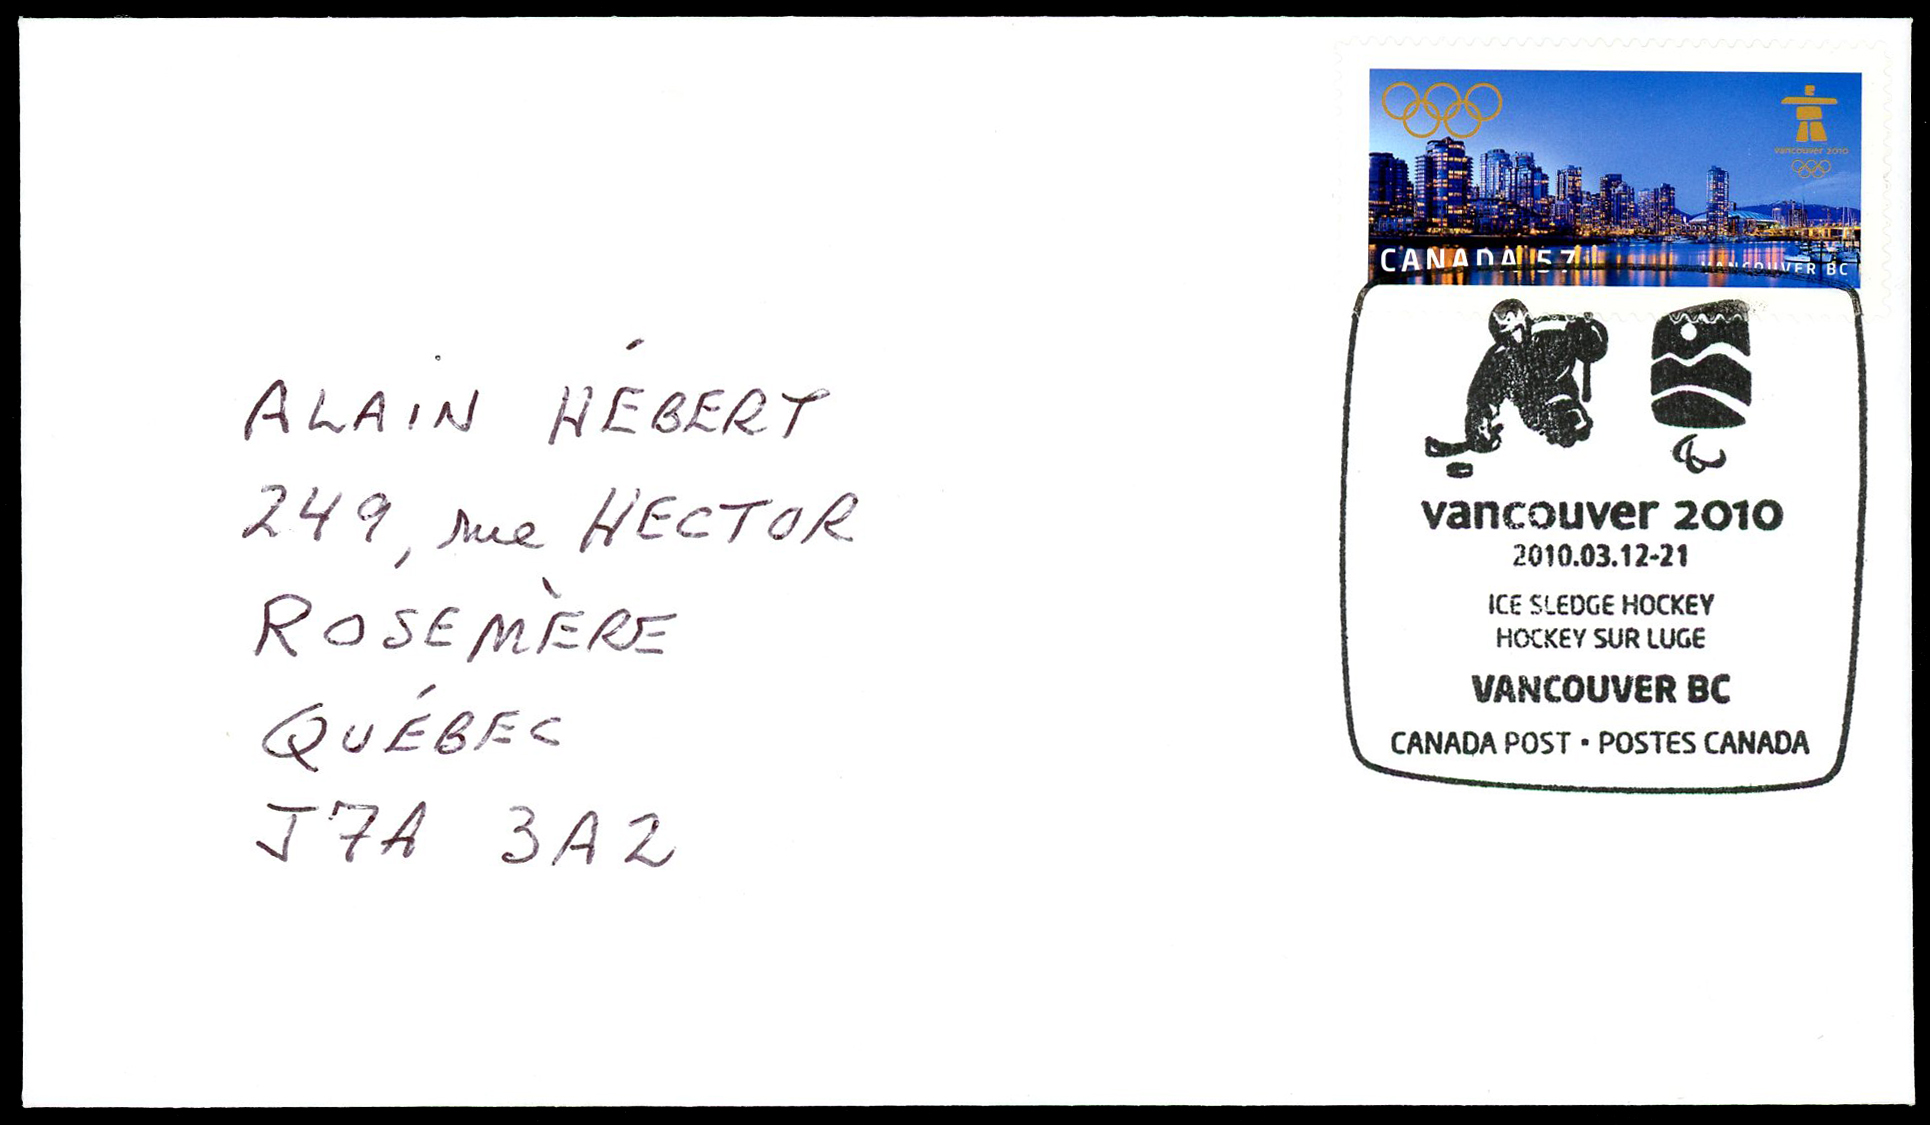 vancouver 2010
CANADA 57
VANCOUVER BC
ALAIN HÉBERT
249, rue HECTOR
ROSEMÈRE
QUÉBEC
J7A 3A2
vancouver 2010
2010.03.12-21
ICE SLEDGE HOCKEY
HOCKEY SUR LUGE
VANCOUVER BC
CANADA POST • POSTES CANADA